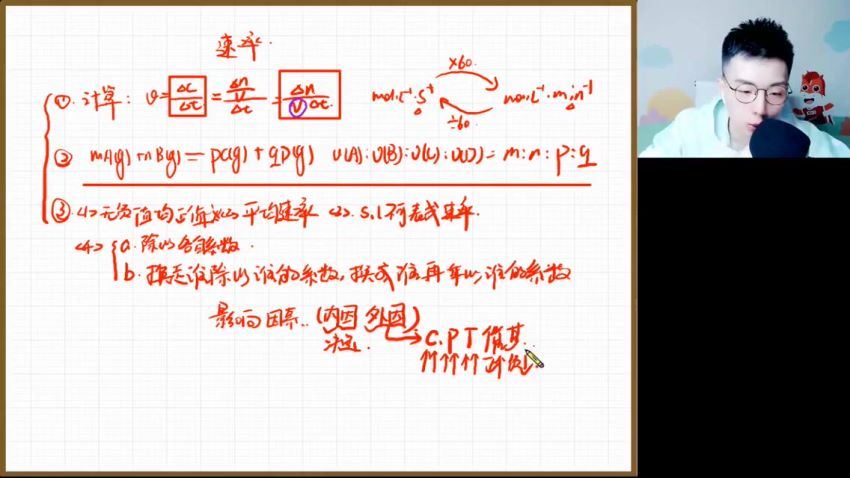 速率.
① 计算: v = Δc/Δt = Δn/V/Δt = Δn/VΔt. mol·L⁻¹·s⁻¹ ×60. ÷60 mol·L⁻¹·min⁻¹
② mA(g)+nB(g)=pC(g)+qD(g) v(A):v(B):v(C):v(D)=m:n:p:q
③ <1>无负值均正值 <2>平均速率 <3>. s.l不表示速率.
<4> a.除以各自系数.
b.换走谁除以谁的系数,换成谁再乘以谁的系数
影响因素..(内因 外因)
决定. C.P T 催 其..
↑↑ ↑↑ ↑↑ 正↑负↓